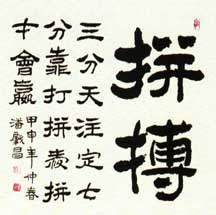 拼搏
三分天注定七
分靠打拼愛拼
才會贏
甲申年仲春
潘昌